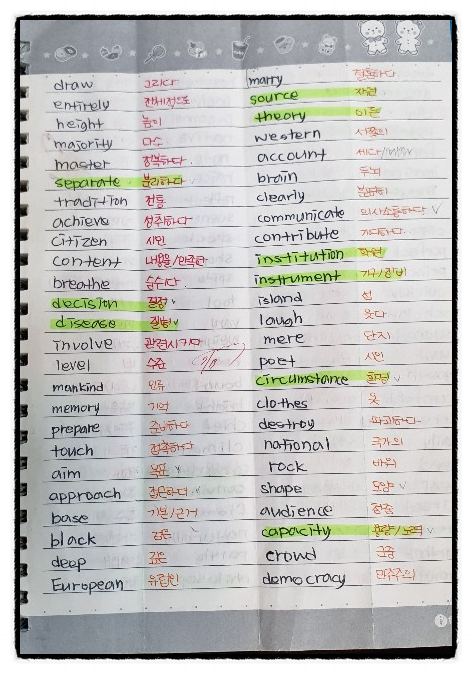 draw 그리다
entirely 전체적으로
height 높이
majority 다수
master 정복하다
separate 분리하다
tradition 전통
achieve 성취하다
citizen 시민
content 내용물/만족한
breathe 숨쉬다
decision 결정
disease 질병
involve 관련시키다
level 수준
mankind 인류
memory 기억
prepare 준비하다
touch 접촉하다
aim 목표
approach 접근하다
base 기본/근거
black 검은
deep 깊은
European 유럽인
marry 결혼하다
source 자원
theory 이론
western 서쪽의
account
brain 두뇌
clearly 분명히
communicate 의사소통하다
contribute 기여하다
institution
instrument 기구/장비
island 섬
laugh 웃다
mere 단지
poet 시인
circumstance 환경
clothes 옷
destroy 파괴하다
national 국가의
rock 바위
shape 모양
audience 청중
capacity 용량/능력
crowd 군중
democracy 민주주의